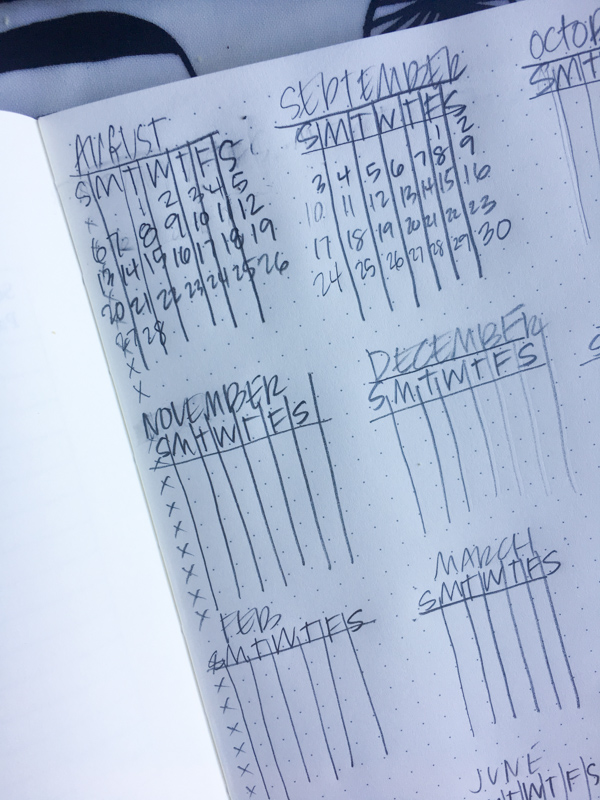 AUGUST
S M T W T F S
1 2 3 4 5
6 7 8 9 10 11 12
13 14 15 16 17 18 19
20 21 22 23 24 25 26
27 28
SEPTEMBER
S M T W T F S
1 2
3 4 5 6 7 8 9
10 11 12 13 14 15 16
17 18 19 20 21 22 23
24 25 26 27 28 29 30
OCTOB
S M T
NOVEMBER
S M T W T F S
DECEMBER
S M T W T F S
FEB
S M T W T F S
MARCH
S M T W T F S
JUNE
M T W T F S